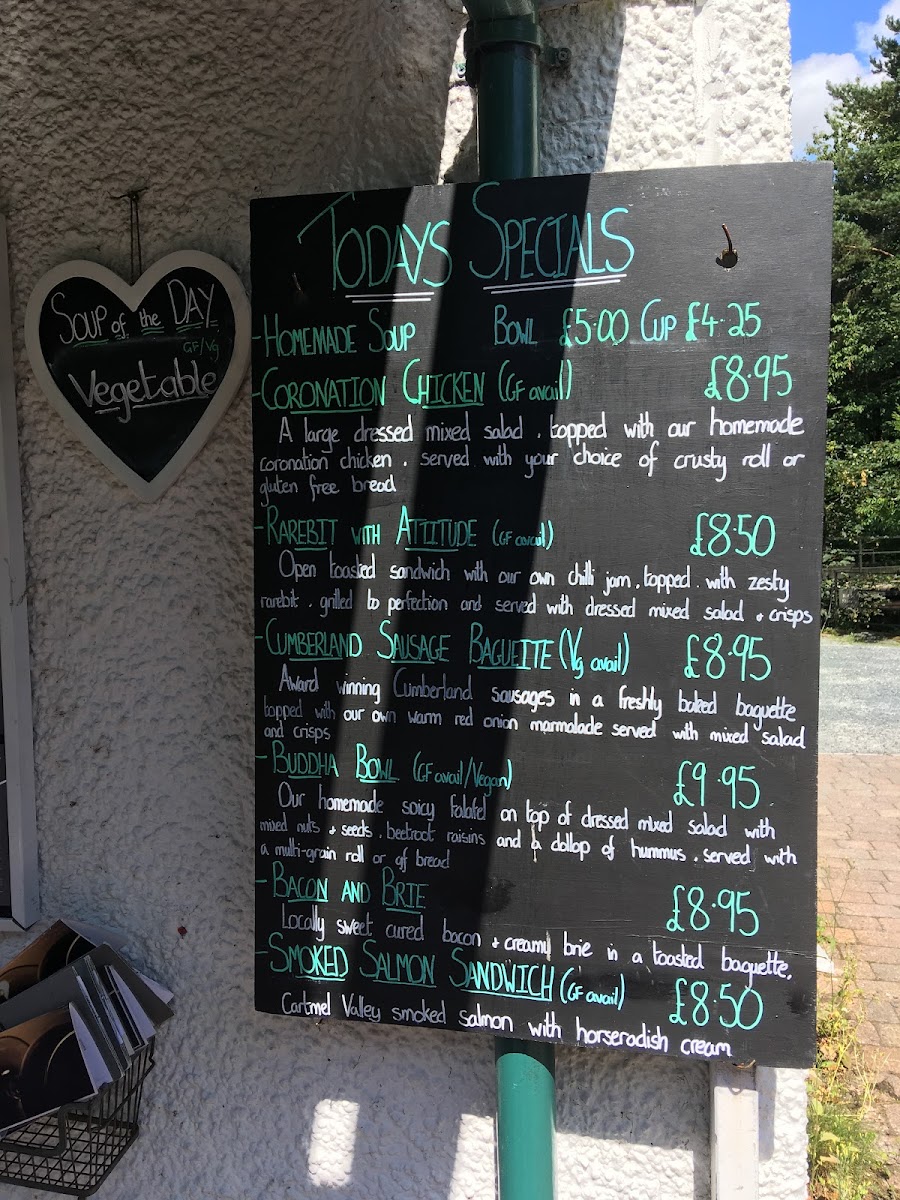 Soup of the Day
GF/Vg
Vegetable
Todays Specials
- Homemade Soup Bowl £5.00 Cup £4.25
- Coronation Chicken (GF avail) £8.95
A large dressed mixed salad, topped with our homemade
coronation chicken, served with your choice of crusty roll or
gluten free bread
- Rarebit with Attitude (GF avail) £8.50
Open toasted sandwich with our own chilli jam, topped with zesty
rarebit, grilled to perfection and served with dressed mixed salad + crisps
- Cumberland Sausage Baguette (Vg avail) £8.95
Award winning Cumberland sausages in a freshly baked baguette
topped with our own warm red onion marmalade served with mixed salad
and crisps
- Buddha Bowl (GF avail/Vegan) £9.95
Our homemade spicy falafel on top of dressed mixed salad with
mixed nuts + seeds, beetroot raisins and a dollop of hummus, served with
a multi-grain roll or gf bread
- Bacon and Brie £8.95
Locally sweet cured bacon + creamy brie in a toasted baguette.
- Smoked Salmon Sandwich (GF avail) £8.50
Cartmel Valley smoked salmon with horseradish cream